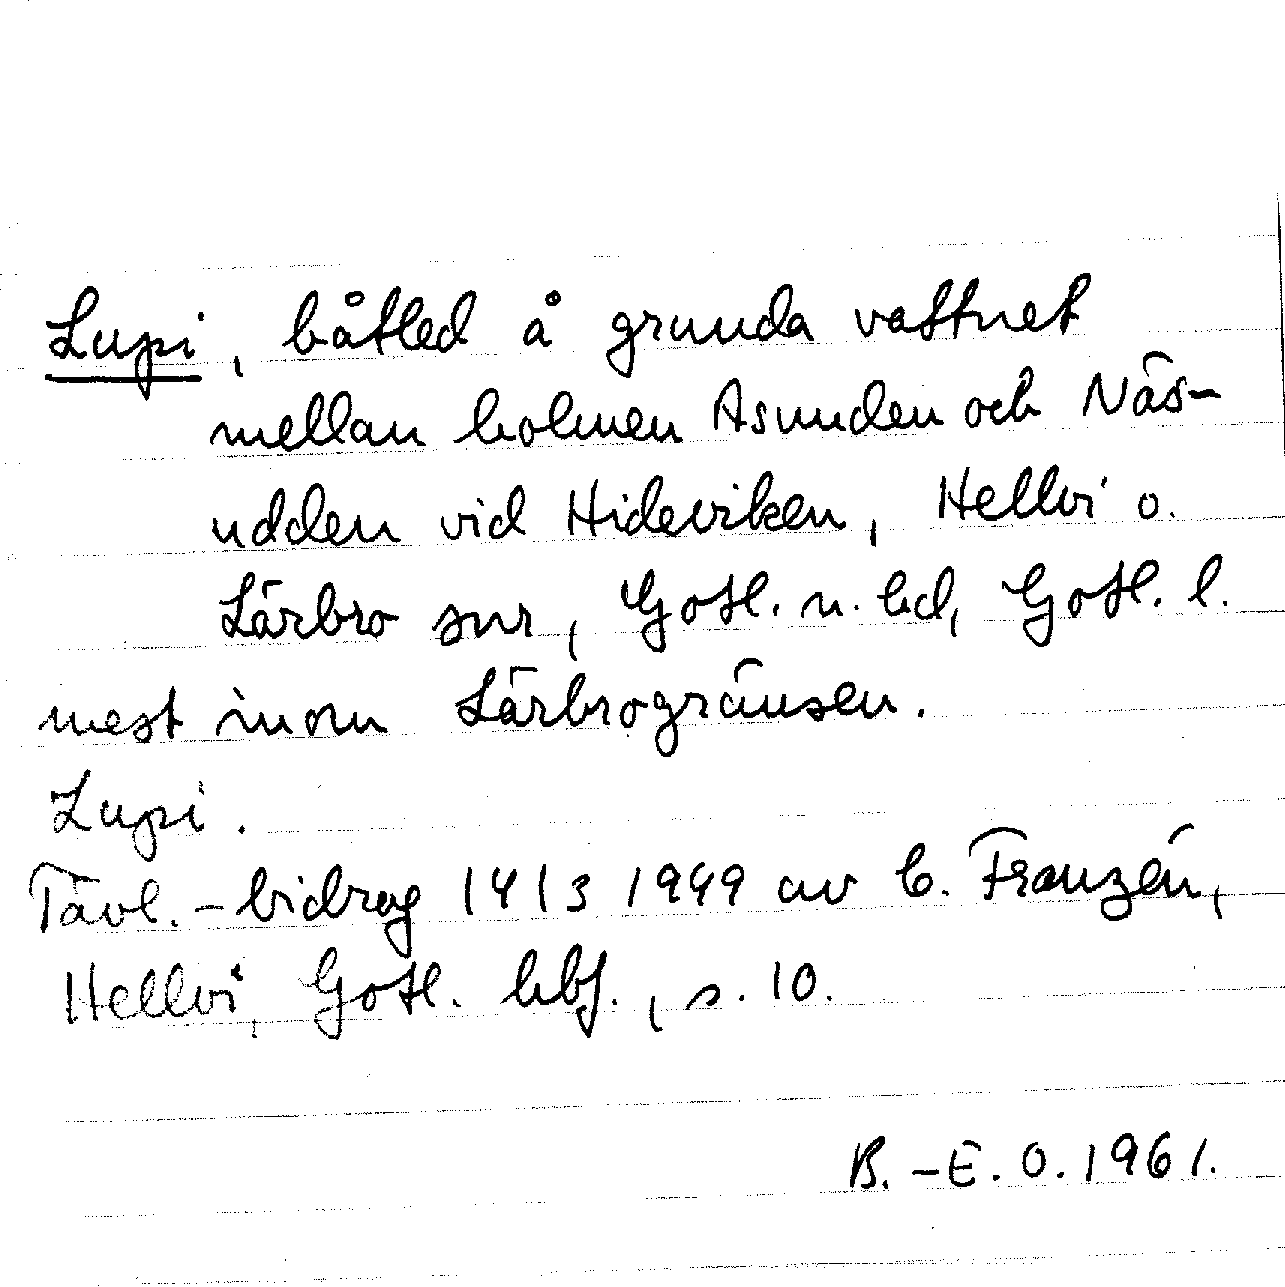 Lupi, båtled å grunda vattnet
mellan holmen Asunden och Näs-
udden vid Hideviken, Hellvi o.
Lärbro snr, Gotl. n. hd, Gotl. l.
mest inom Lärbrogränsen.
Lupi.
Tävl.-bidrag 14/3 1949 av C. Franzén,
Hellvi, Gotl. hbf., s. 10.
B.-E. O. 1961.